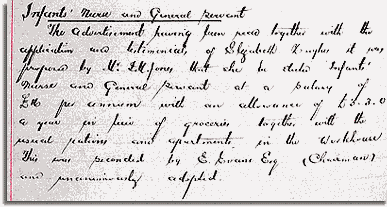 Infants' Nurse and General Servant
The advertisement having been read together with the
application and testimonials of Elizabeth Hughes it was
proposed by Mr. Jones that she be elected Infants'
Nurse and General Servant at a salary of
per annum with an allowance of £3.3.0
a year in lieu of groceries together with the
usual rations and apartments in the Workhouse
This was seconded by E. Evans Esq (Chairman)
and unanimously adopted.